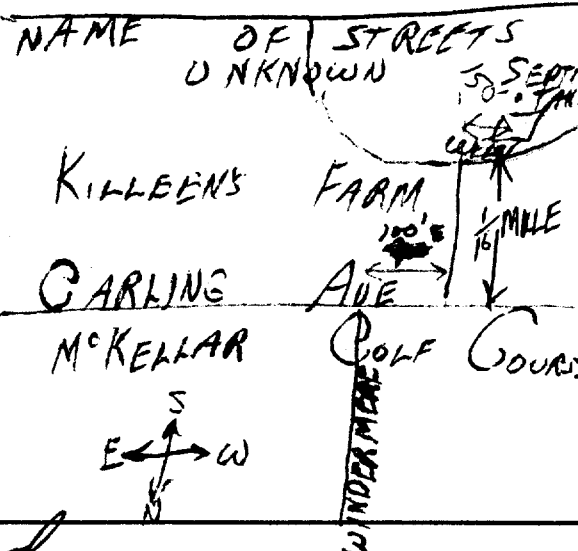 NAME OF STREETS
UNKNOWN
50'
SEPTI
TAN
WELL
KILLEENS FARM
100' E
1/16 MILE
CARLING AVE
McKELLAR GOLF COURS
WINDERMERE
S
E W
N